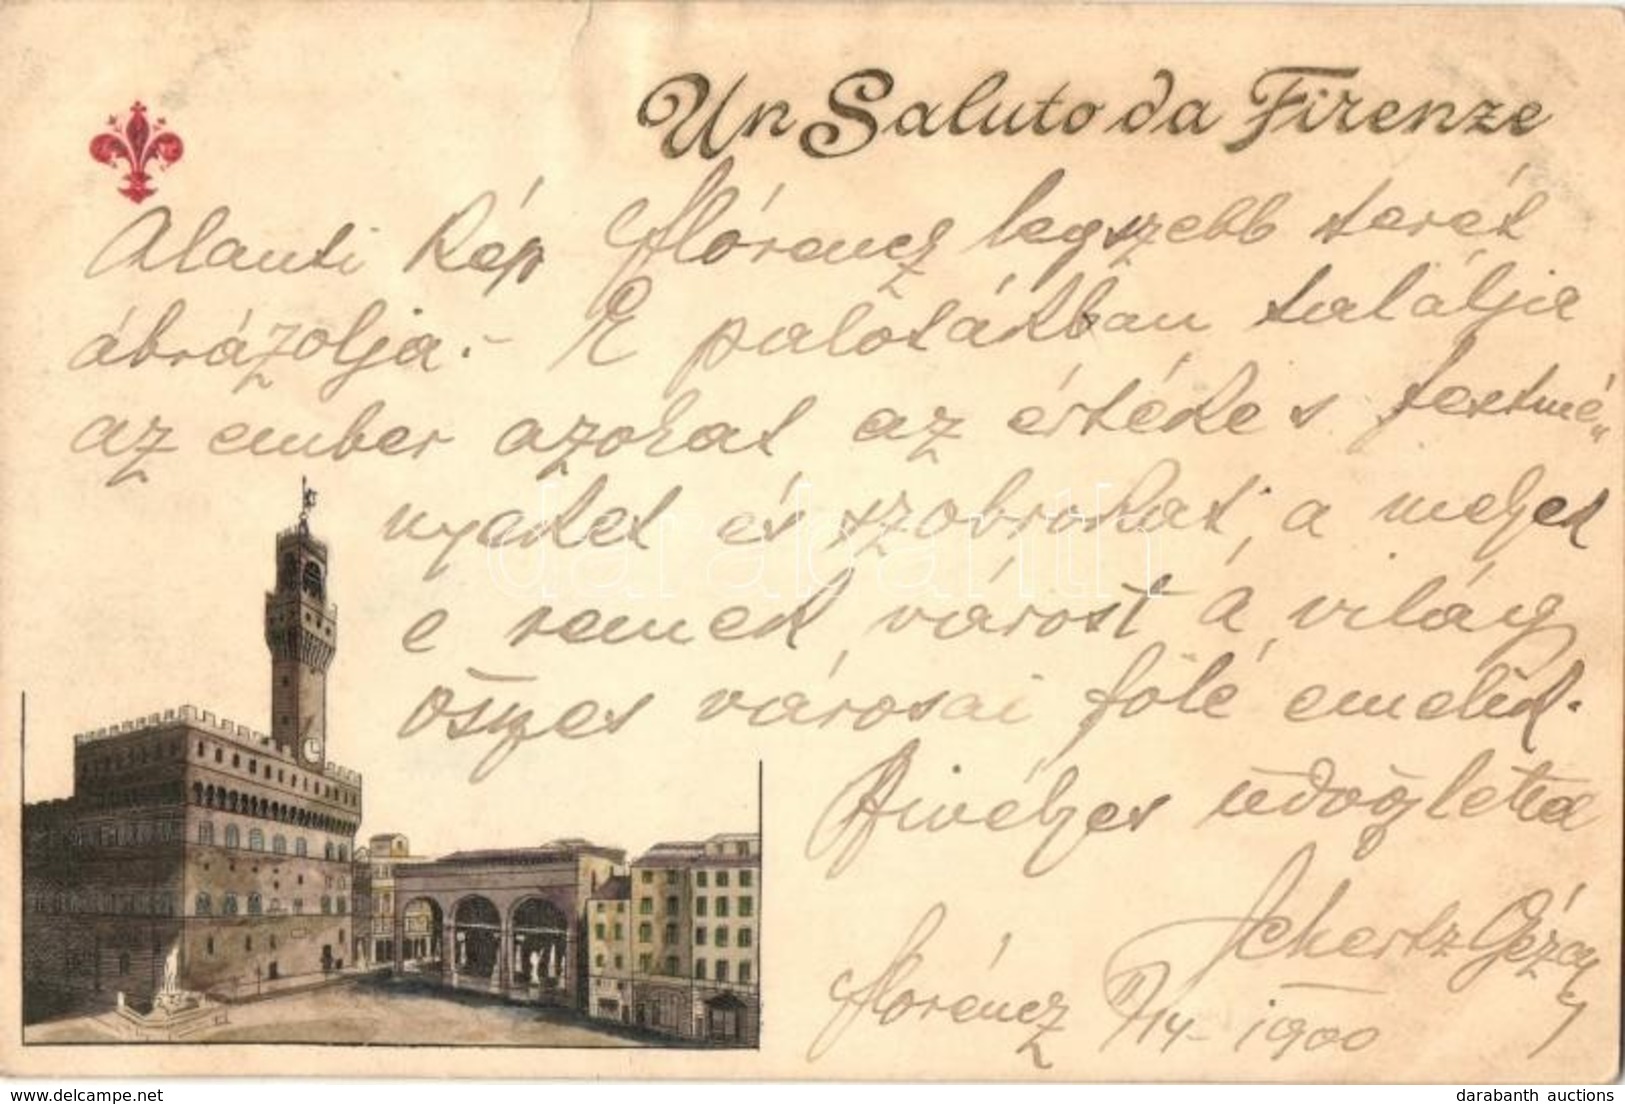 Un Saluto da Firenze
Alanti kép Flórencz legszebb terét
ábrázolja.- E palotákban találja
az ember azokat az értékes festmé„
nyeket és szobrokat, a melyek
e remek várost a világ
összes városai fölé emelik.
Szivélyes üdvözlettel
Schertz Géza
Flórencz 14- 1900
darabanth
delcampe.net
darabanth auctions